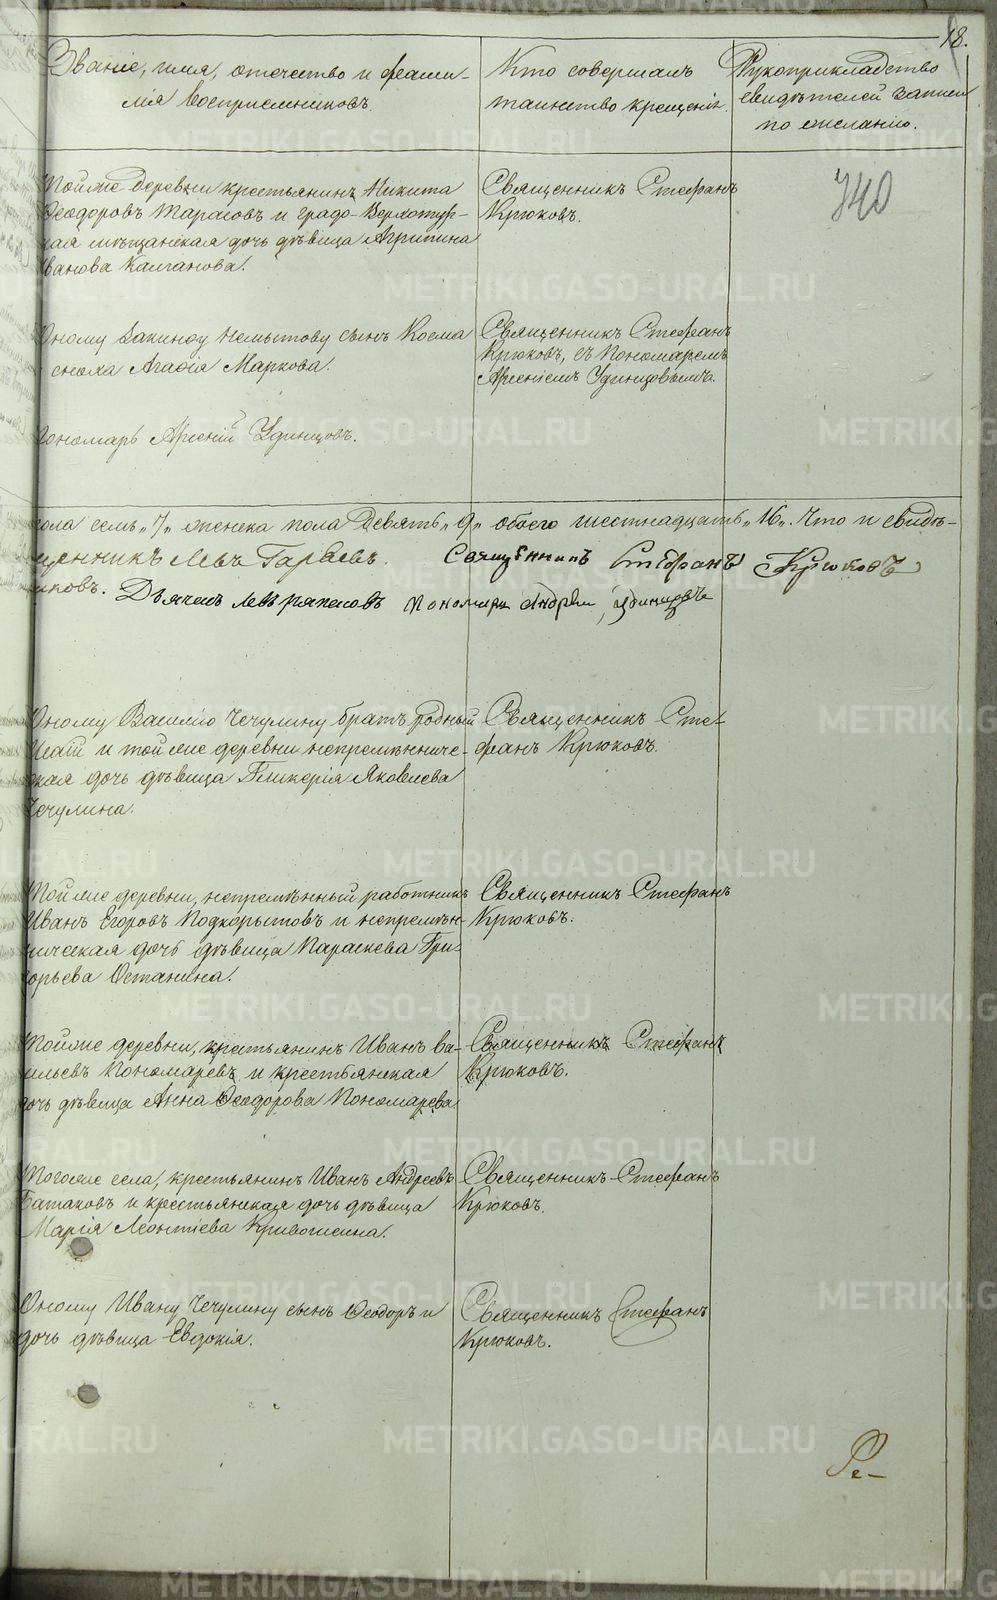 18.
Званіе, имя, отечество и фами-
лія воспріемниковъ.
Кто совершалъ
таинство крещенія.
Рукоприкладство
свидѣтелей записи
по желанію.
740
Тойже деревни крестьянинъ Никита
Ѳеодоровъ Тарасовъ и градо-Верхотур-
ская мѣщанская дочь дѣвица Агрипина
Иванова Калганова.
Священникъ Стефанъ
Крюковъ.
Оному Закинфу Немытову сынъ Косма
сноха Агафія Маркова.
Священникъ Стефанъ
Крюковъ, съ Пономаремъ
Арсеніемъ Удинцовымъ.
Пономарь Арсеній Удинцовъ.
пола семь „7„ женска пола Девять „9„ обоего шестнадцать „16„. Что и свидѣ-
щенникъ Левъ Гаряевъ. Священникъ Стефанъ Крюковъ
Дьячекъ Левъ Пономарь Андрей Удинцовъ
Оному Василію Чечулину братъ родный
и той же деревни непремѣнниче-
ская дочь дѣвица Гликерія Яковлева
Чечулина.
Священникъ Сте-
фанъ Крюковъ.
Той же деревни, непремѣнный работникъ
Иванъ Егоровъ Подкорытовъ и непремѣн-
ническая дочь дѣвица Параскева Гри-
горьева Останина.
Священникъ Стефанъ
Крюковъ.
Той же деревни, крестьянинъ Иванъ Ва-
сильевъ Пономаревъ и крестьянская
дочь дѣвица Анна Ѳеодорова Пономарева.
Священникъ Стефанъ
Крюковъ.
Тогоже села, крестьянинъ Иванъ Андреевъ
Батаковъ и крестьянская дочь дѣвица
Марія Леонтіева Кривошеина.
Священникъ Стефанъ
Крюковъ.
Оному Ивану Чечулину сынъ Ѳеодоръ и
дочь дѣвица Евдокія.
Священникъ Стефанъ
Крюковъ.
Ре-
METRIKI.GASO-URAL.RU